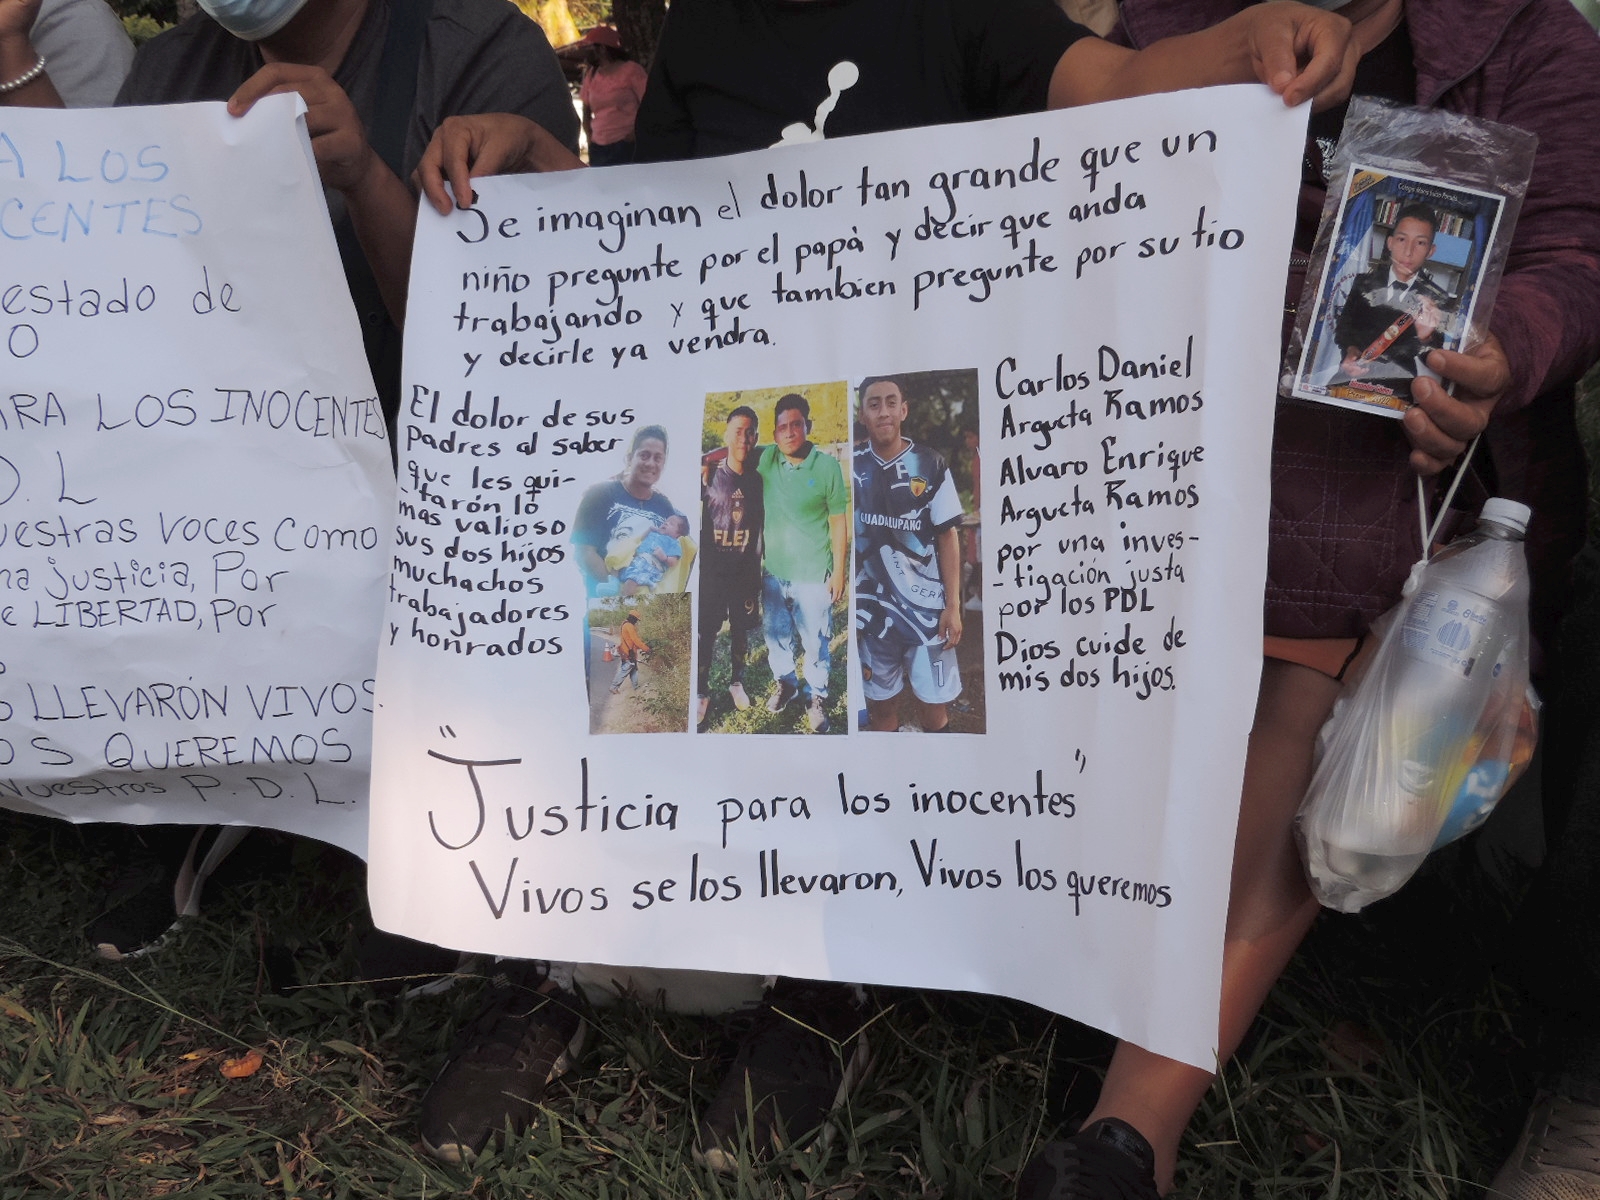 A LOS
CENTES
estado de
O
ARA LOS INOCENTES
D. L
uestras voces como
na justicia, Por
e LIBERTAD, Por
S LLEVARÓN VIVOS
OS QUEREMOS
Nuestros P. D. L.
Se imaginan el dolor tan grande que un
niño pregunte por el papá y decir que anda
trabajando y que tambien pregunte por su tio
y decirle ya vendra.
El dolor de sus
padres al saber
que les qui-
tarón lo
mas valioso
sus dos hijos
muchachos
trabajadores
y honrados
FLE
GUADALUPANO
1
Carlos Daniel
Argueta Ramos
Alvaro Enrique
Argueta Ramos
por una inves-
-tigación justa
por los PDL
Dios cuide de
mis dos hijos.
"Justicia para los inocentes"
Vivos se los llevaron, Vivos los queremos